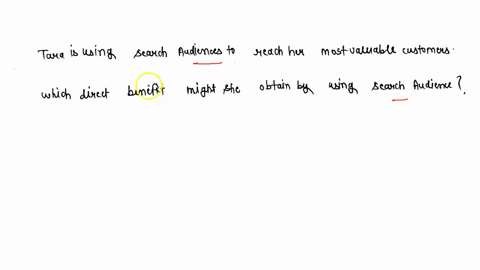 Tara is using search Audiences to reach her most valuable customers.
which direct benifit might she obtain by using search Audience?